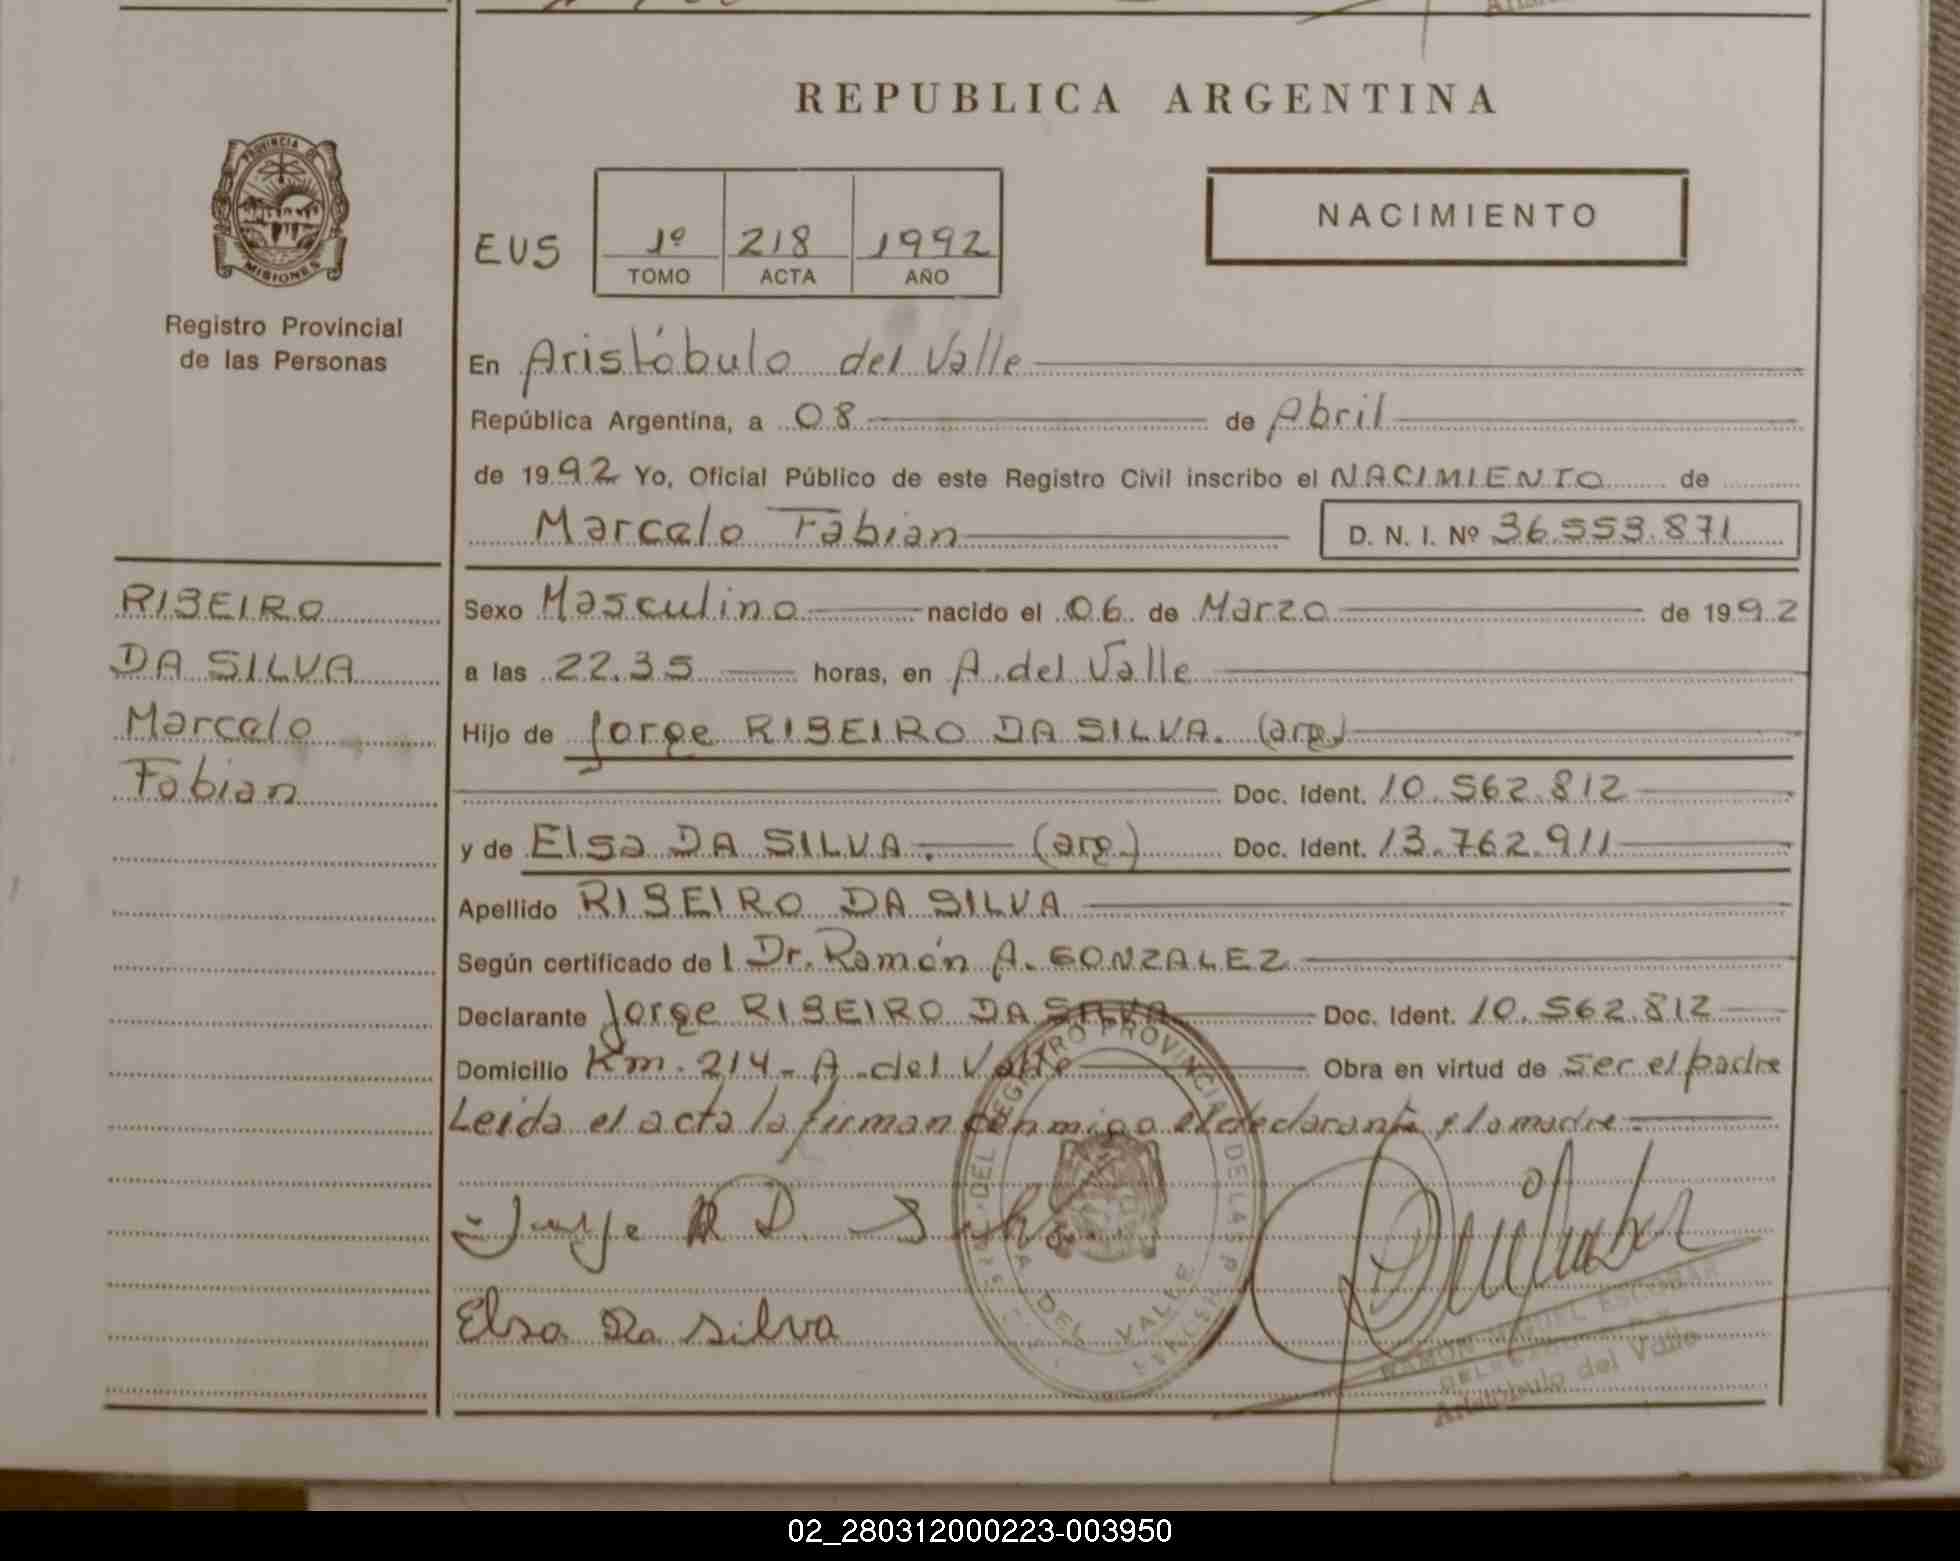 REPUBLICA ARGENTINA
PROVINCIA DE
MISIONES
Registro Provincial
de las Personas
NACIMIENTO
EUS 1º 218 1992
TOMO ACTA AÑO
En Aristóbulo del Valle
República Argentina, a 08 de Abril
de 1992 Yo, Oficial Público de este Registro Civil inscribo el NACIMIENTO de
Marcelo Fabian D. N. I. Nº 36.553.871
RIBEIRO
DA SILVA
Marcelo
Fabian
Sexo Masculino nacido el 06 de Marzo de 1992
a las 22.35 horas, en A. del Valle
Hijo de Jorge RIBEIRO DA SILVA. (arg)
Doc. Ident. 10.562.812
y de Elsa DA SILVA. (arg.) Doc. Ident. 13.762.911
Apellido RIBEIRO DA SILVA
Según certificado del Dr. Ramón A. GONZALEZ
Declarante Jorge RIBEIRO DA SILVA Doc. Ident. 10.562.812
Domicilio Km. 214 - A. del Valle Obra en virtud de ser el padre
Leida el acta la firman conmigo el declarante y la madre.
Jorge R D. Silva
Elsa Da Silva
DEL REGISTRO PROVINCIAL DE LAS P
DEL VALLE
RAMON MIGUEL ESCOBAR
Aristóbulo del Valle
02_280312000223-003950